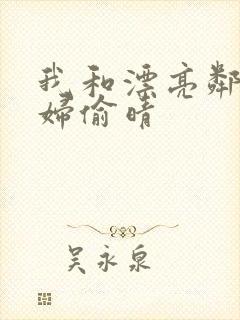 我和漂亮鄰
婦偷晴
吴永泉